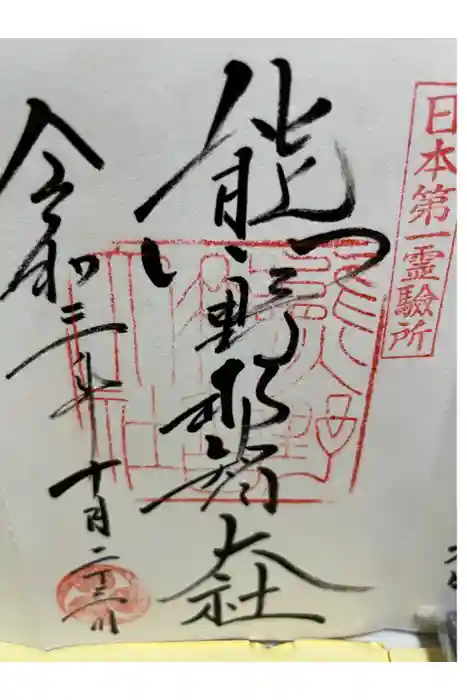 日本第一霊験所
熊野那智大社
令和三年十月二十三日